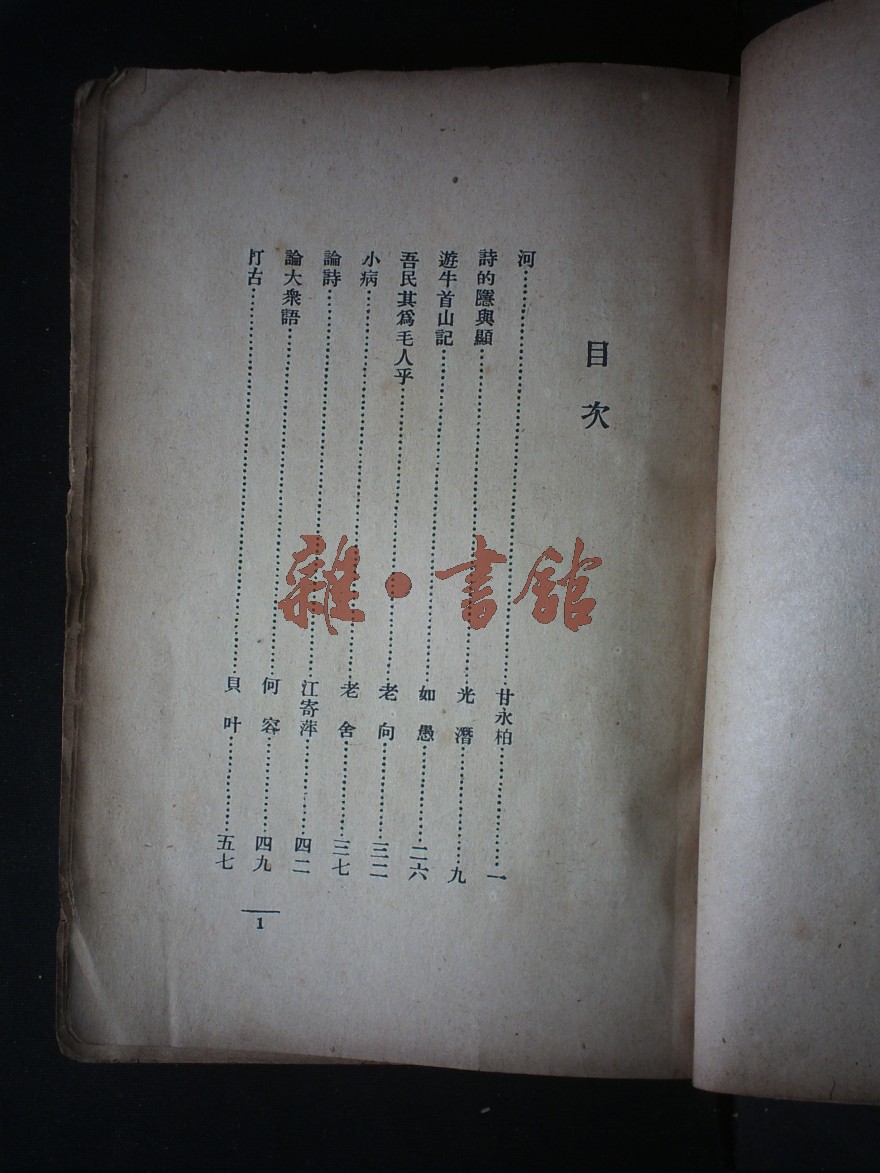 目次
河 甘永柏 一
詩的隱與顯 光潛 九
遊牛首山記 如愚 二六
吾民其為毛人乎 老向 三二
小病 老舍 三七
論詩 江寄萍 四二
論大衆語 何容 四九
打古 貝叶 五七
1
雜·書館